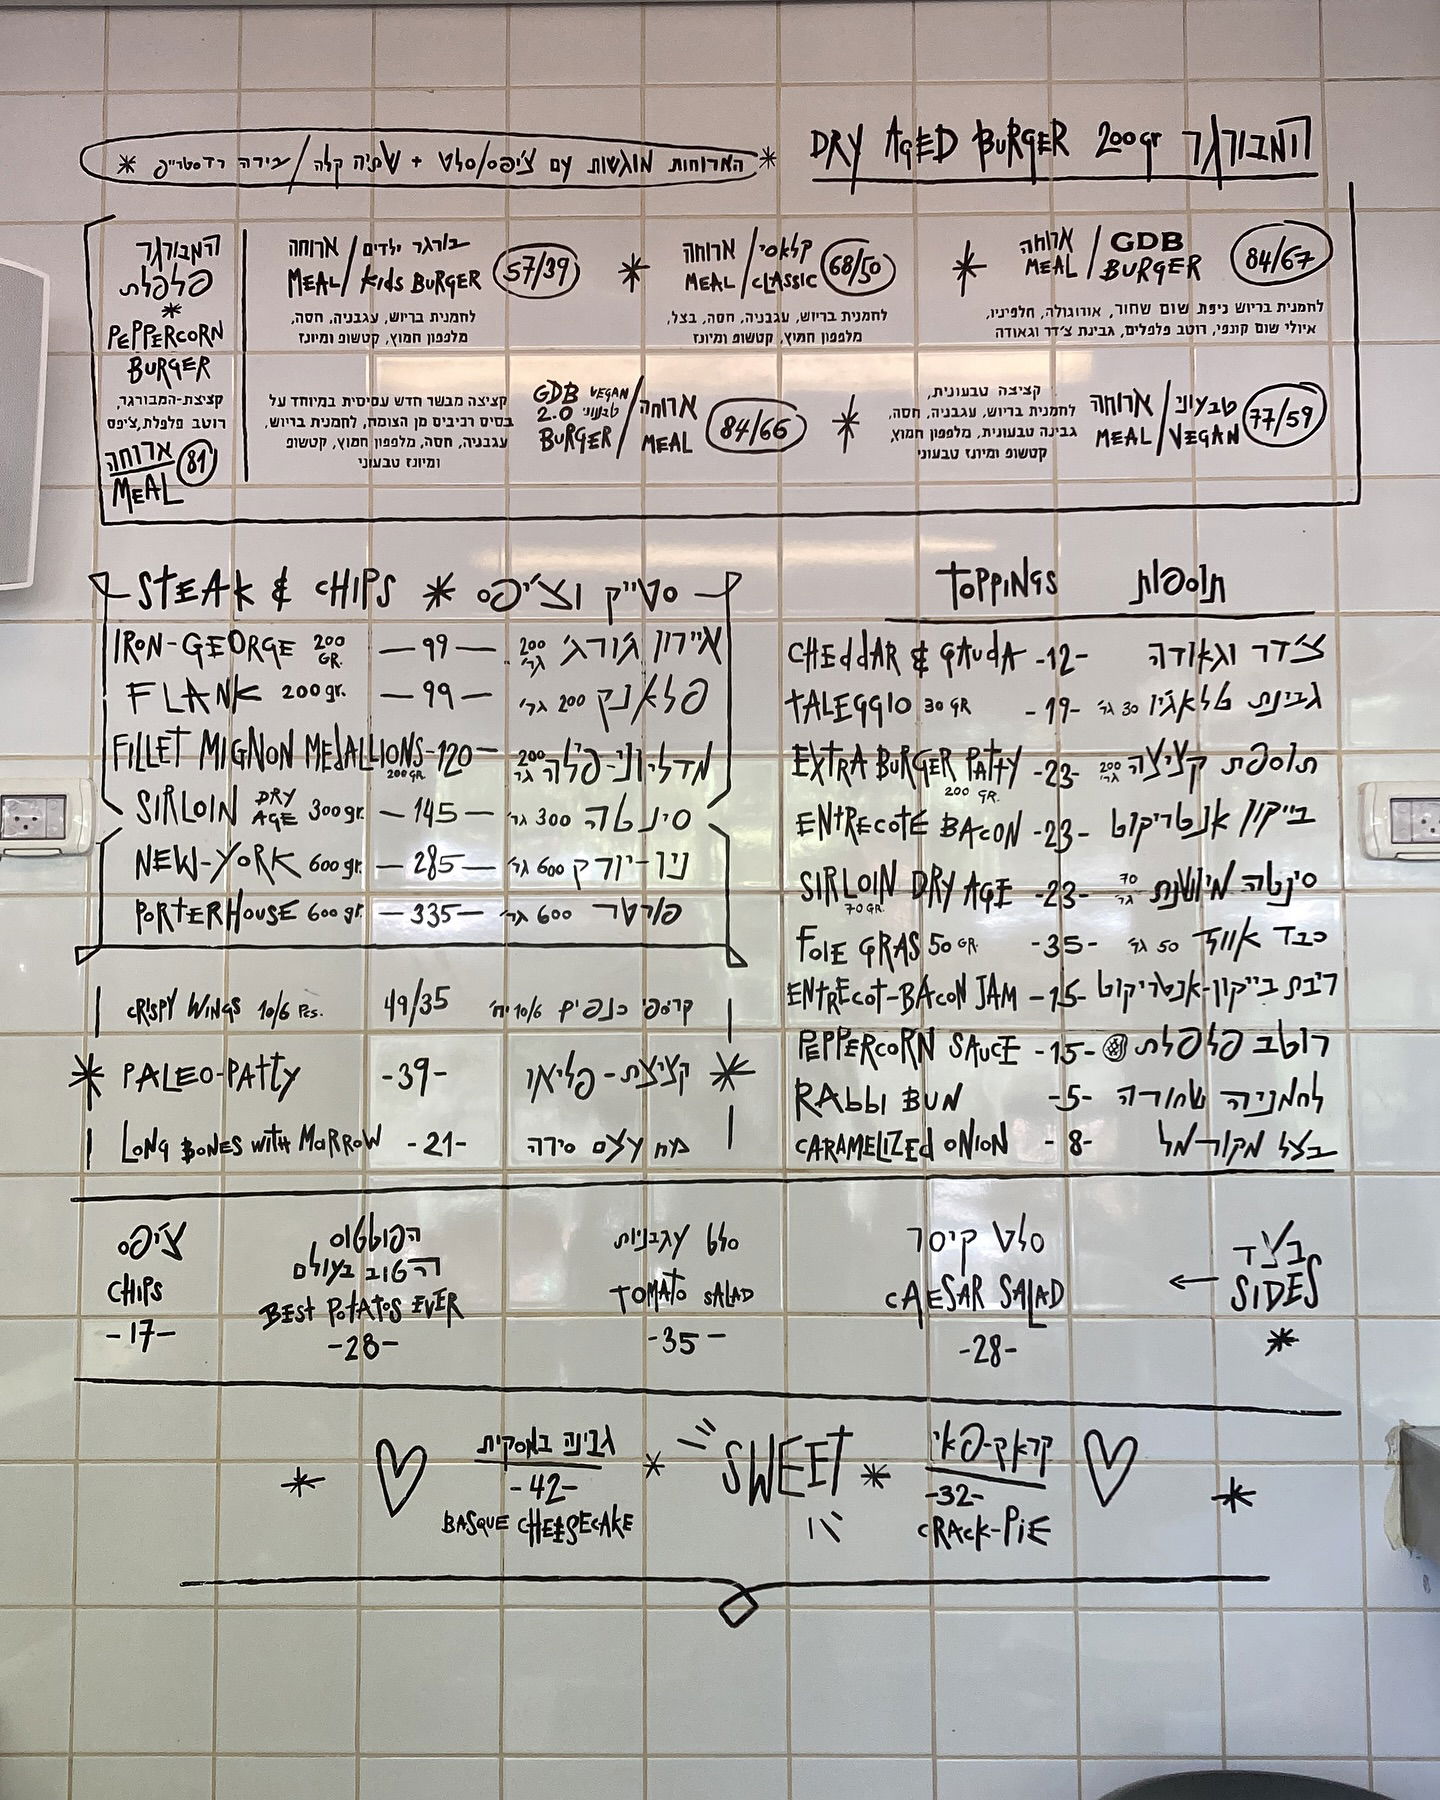 DRY AGED BURGER 200gr המבורגר
* הארוחות מוגשות עם צ'יפס/סלט + שתיה קלה / בירה רדסטרייפ *
GDB BURGER / ארוחה MEAL 84/67
לחמנית בריוש ניפת שום שחור, אורוגולה, חלפיניו,
איולי שום קונפי, רוטב פלפלים, גבינת צ'דר וגאודה
*
קלאסי CLASSIC / ארוחה MEAL 68/50
לחמנית בריוש, עגבניה, חסה, בצל,
מלפפון חמוץ, קטשופ ומיונז
*
בורגר ילדים Kids BURGER / ארוחה MEAL 57/39
לחמנית בריוש, עגבניה, חסה,
מלפפון חמוץ, קטשופ ומיונז
טבעוני VEGAN / ארוחה MEAL 77/59
קציצה טבעונית,
לחמנית בריוש, עגבניה, חסה,
גבינה טבעונית, מלפפון חמוץ,
קטשופ ומיונז טבעוני
*
GDB VEGAN
2.0 טבעוני
BURGER / ארוחה MEAL 84/66
קציצה מבשר חדש עסיסית במיוחד על
בסיס רכיבים מן הצומח, לחמנית בריוש,
עגבניה, חסה, מלפפון חמוץ, קטשופ
ומיונז טבעוני
המבורגר
פלפלת
*
PEPPERCORN
BURGER
קציצת-המבורגר,
רוטב פלפלת,צ'יפס
ארוחה 81
MEAL
STEAK & CHIPS * סטייק וצ'יפס
IRON-GEORGE 200 GR. — 99 — איירון ג'ורג' 200 גר'
FLANK 200gr. — 99 — פלאנק 200 גר'
FILLET MIGNON MEDALLIONS 200 GR. -120- מדליוני-פילה 200 גר'
SIRLOIN DRY AGE 300gr. — 145 — סינטה 300 גר'
NEW-YORK 600gr. — 285 — ניו-יורק 600 גר'
PORTERHOUSE 600gr. — 335 — פורטר 600 גר'
CRISPY WINGS 10/6 Pcs. 49/35 קריספי כנפיים 10/6 יח'
* PALEO-PATTY -39- קציצת-פליאו *
LONG BONES WITH MARROW -21- מח עצם סידה
TOPPINGS תוספות
CHEDDAR & GAUDA -12- צ'דר וגאודה
TALEGGIO 30 GR -19- גבינת טלאג'יו 30 גר'
EXTRA BURGER PATTY 200 GR. -23- תוספת קציצה 200 גר'
ENTRECOTE BACON -23- בייקון אנטריקוט
SIRLOIN DRY AGE 70 GR. -23- סינטה מיושנת 70 גר'
FOIE GRAS 50 GR. -35- כבד אווז 50 גר'
ENTRECOT-BACON JAM -15- ריבת בייקון-אנטריקוט
PEPPERCORN SAUCE -15- רוטב פלפלת
RABBI BUN -5- לחמניה שחורה
CARAMELIZED ONION -8- בצל מקורמל
בצד
SIDES
*
סלט קיסר
CAESAR SALAD
-28-
סלט עגבניות
TOMATO SALAD
-35-
הפוטטוס
הטוב בעולם
BEST POTATOS EVER
-28-
צ'יפס
CHIPS
-17-
SWEET
קראק-פאי
-32-
CRACK-PIE
גבינה באסקית
-42-
BASQUE CHEESECAKE